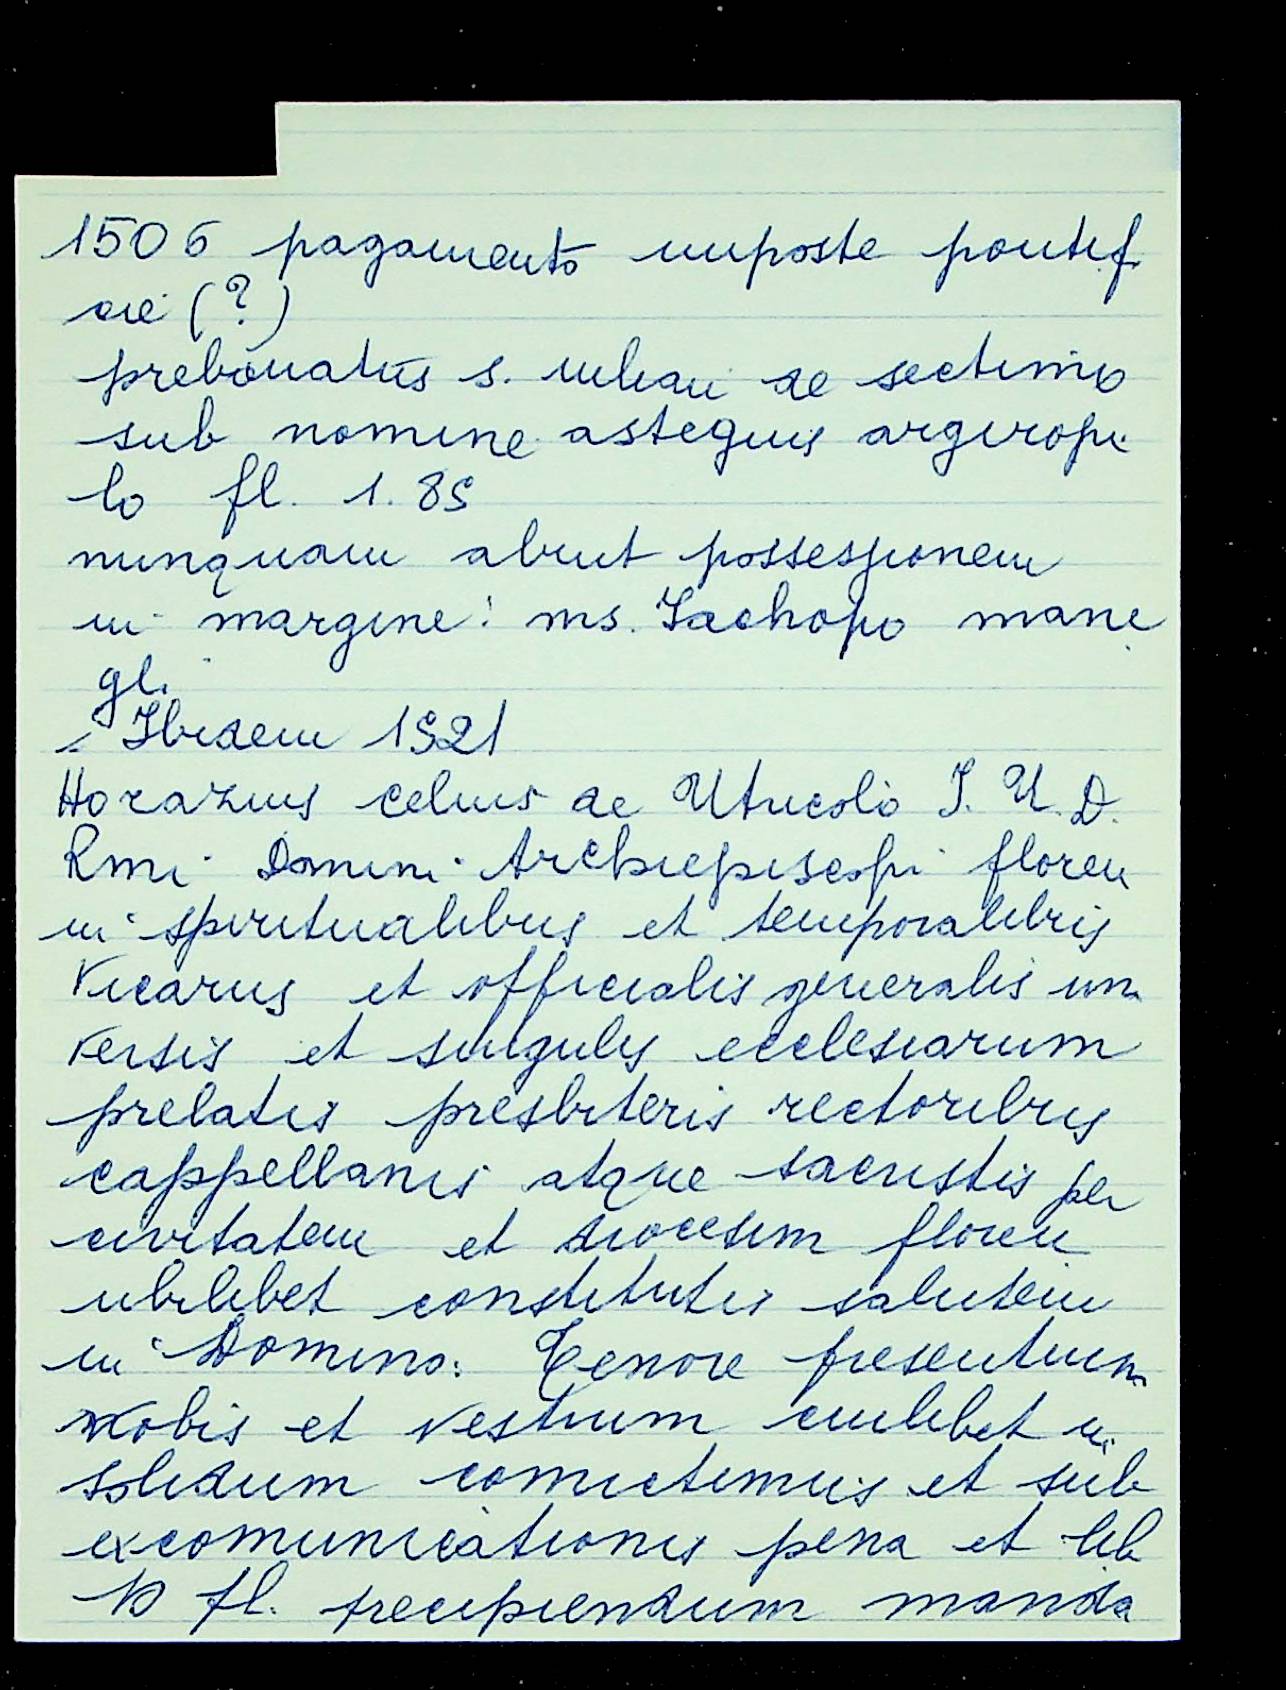 1506 pagamento imposte pontif
cie (?)
prebonatus s. iuliani de sectimo
sub nomine asteguis argiropi
lo fl. 1. 85
nunquam abuit possessionem
in margine: ms. Jachopo mane
gli
Ibidem 1521
Horazius celius de Utucolo J. U. D.
Rmi Domini Archiepiscopi floren
in spiritualibus et temporalibus
Vicarius et officialis generalis uni
versis et singulis ecclesiarum
prelatis presbiteris rectoribus
cappellanis atque sacristis per
civitatem et diocesim floren
ubilibet constitutis salutem
in Domino. Tenore presentium
vobis et vestrum cuilibet in
solidum comictimus et sub
excomunicationis pena et lib
10 fl. precipiendum manda